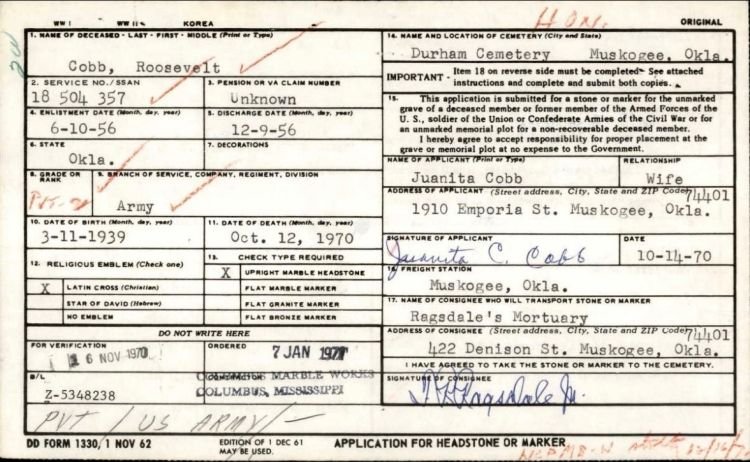 WW I WW II KOREA HON. ORIGINAL
1. NAME OF DECEASED - LAST - FIRST - MIDDLE (Print or Type)
Cobb, Roosevelt
2. SERVICE NO./SSAN
18 504 357
3. PENSION OR VA CLAIM NUMBER
Unknown
4. ENLISTMENT DATE (Month, day, year)
6-10-56
5. DISCHARGE DATE (Month, day, year)
12-9-56
6. STATE
Okla.
7. DECORATIONS
8. GRADE OR RANK
PVT-2
9. BRANCH OF SERVICE, COMPANY, REGIMENT, DIVISION
Army
10. DATE OF BIRTH (Month, day, year)
3-11-1939
11. DATE OF DEATH (Month, day, year)
Oct. 12, 1970
12. RELIGIOUS EMBLEM (Check one)
X LATIN CROSS (Christian)
STAR OF DAVID (Hebrew)
NO EMBLEM
13. CHECK TYPE REQUIRED
X UPRIGHT MARBLE HEADSTONE
FLAT MARBLE MARKER
FLAT GRANITE MARKER
FLAT BRONZE MARKER
DO NOT WRITE HERE
FOR VERIFICATION
16 NOV 1970
ORDERED
7 JAN 1971
B/L
Z-5348238
COLUMBUS MARBLE WORKS
COLUMBUS, MISSISSIPPI
PVT / US ARMY/-
14. NAME AND LOCATION OF CEMETERY (City and State)
Durham Cemetery Muskogee, Okla.
IMPORTANT - Item 18 on reverse side must be completed. See attached
instructions and complete and submit both copies.
15. This application is submitted for a stone or marker for the unmarked
grave of a deceased member or former member of the Armed Forces of the
U. S., soldier of the Union or Confederate Armies of the Civil War or for
an unmarked memorial plot for a non-recoverable deceased member.
I hereby agree to accept responsibility for proper placement at the
grave or memorial plot at no expense to the Government.
NAME OF APPLICANT (Print or Type)
Juanita Cobb
RELATIONSHIP
Wife
ADDRESS OF APPLICANT (Street address, City, State and ZIP Code)
74401
1910 Emporia St. Muskogee, Okla.
SIGNATURE OF APPLICANT
Juanita C. Cobb
DATE
10-14-70
16. FREIGHT STATION
Muskogee, Okla.
17. NAME OF CONSIGNEE WHO WILL TRANSPORT STONE OR MARKER
Ragsdale's Mortuary
ADDRESS OF CONSIGNEE (Street address, City, State and ZIP Code)
74401
422 Denison St. Muskogee, Okla.
I HAVE AGREED TO TAKE THE STONE OR MARKER TO THE CEMETERY.
SIGNATURE OF CONSIGNEE
Ragsdale Jr.
DD FORM 1330, 1 NOV 62 EDITION OF 1 DEC 61
MAY BE USED. APPLICATION FOR HEADSTONE OR MARKER